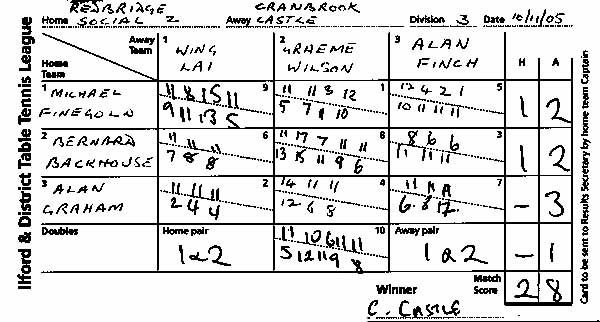 REDBRIDGE CRANBROOK
Home SOCIAL 2 Away CASTLE Division 3 Date 10/11/05
Ilford & District Table Tennis League
Away Team
Home Team
1 WING LAI
2 GRAEME WILSON
3 ALAN FINCH
H A
1 MICHAEL FINEGOLD
11 8 15 11 9
9 11 13 5
11 11 3 12 1
5 7 11 10
12 4 2 1 5
10 11 11 11
1 2
2 BERNARD BACKHOUSE
11 11 11 6
7 8 8
11 17 7 11 11 8
13 15 11 9 6
8 6 6 3
11 11 11
1 2
3 ALAN GRAHAM
11 11 11 2
2 4 4
14 11 11 4
12 6 8
11 11 7
6 8 12
- 3
Doubles
Home pair
1 & 2
11 10 6 11 11 10
5 12 11 9 8
Away pair
1 & 2
- 1
Winner C. CASTLE
Match Score 2 8
Card to be sent to Results Secretary by home team Captain